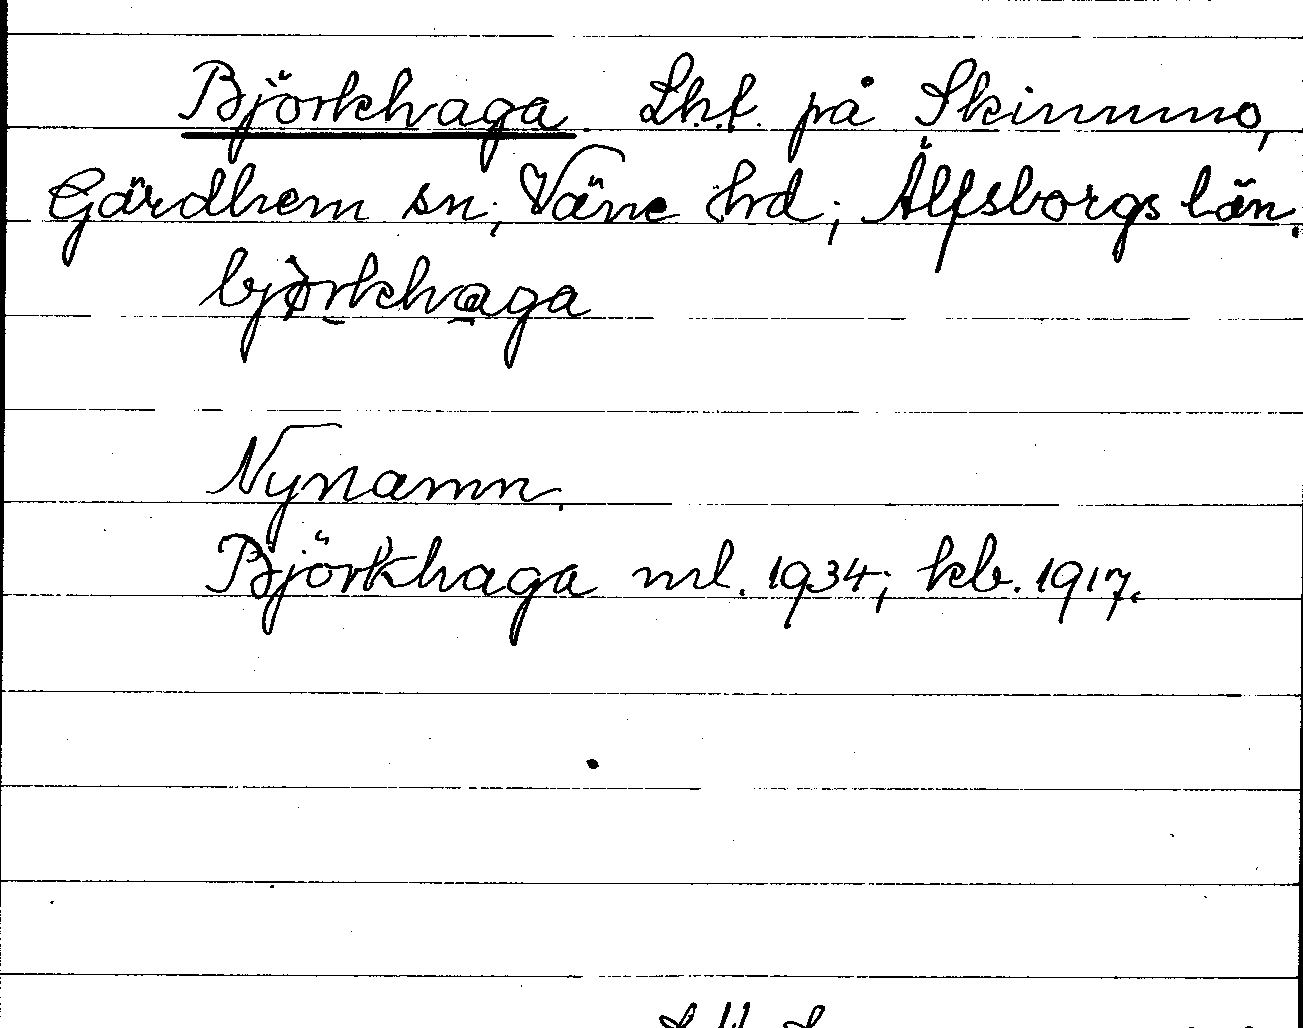 Björkhaga Lht. på Skinnmo,
Gärdhem sn; Väne hd; Älfsborgs län.
björkhaga
Nynamn.
Björkhaga ml. 1934; kb. 1917.